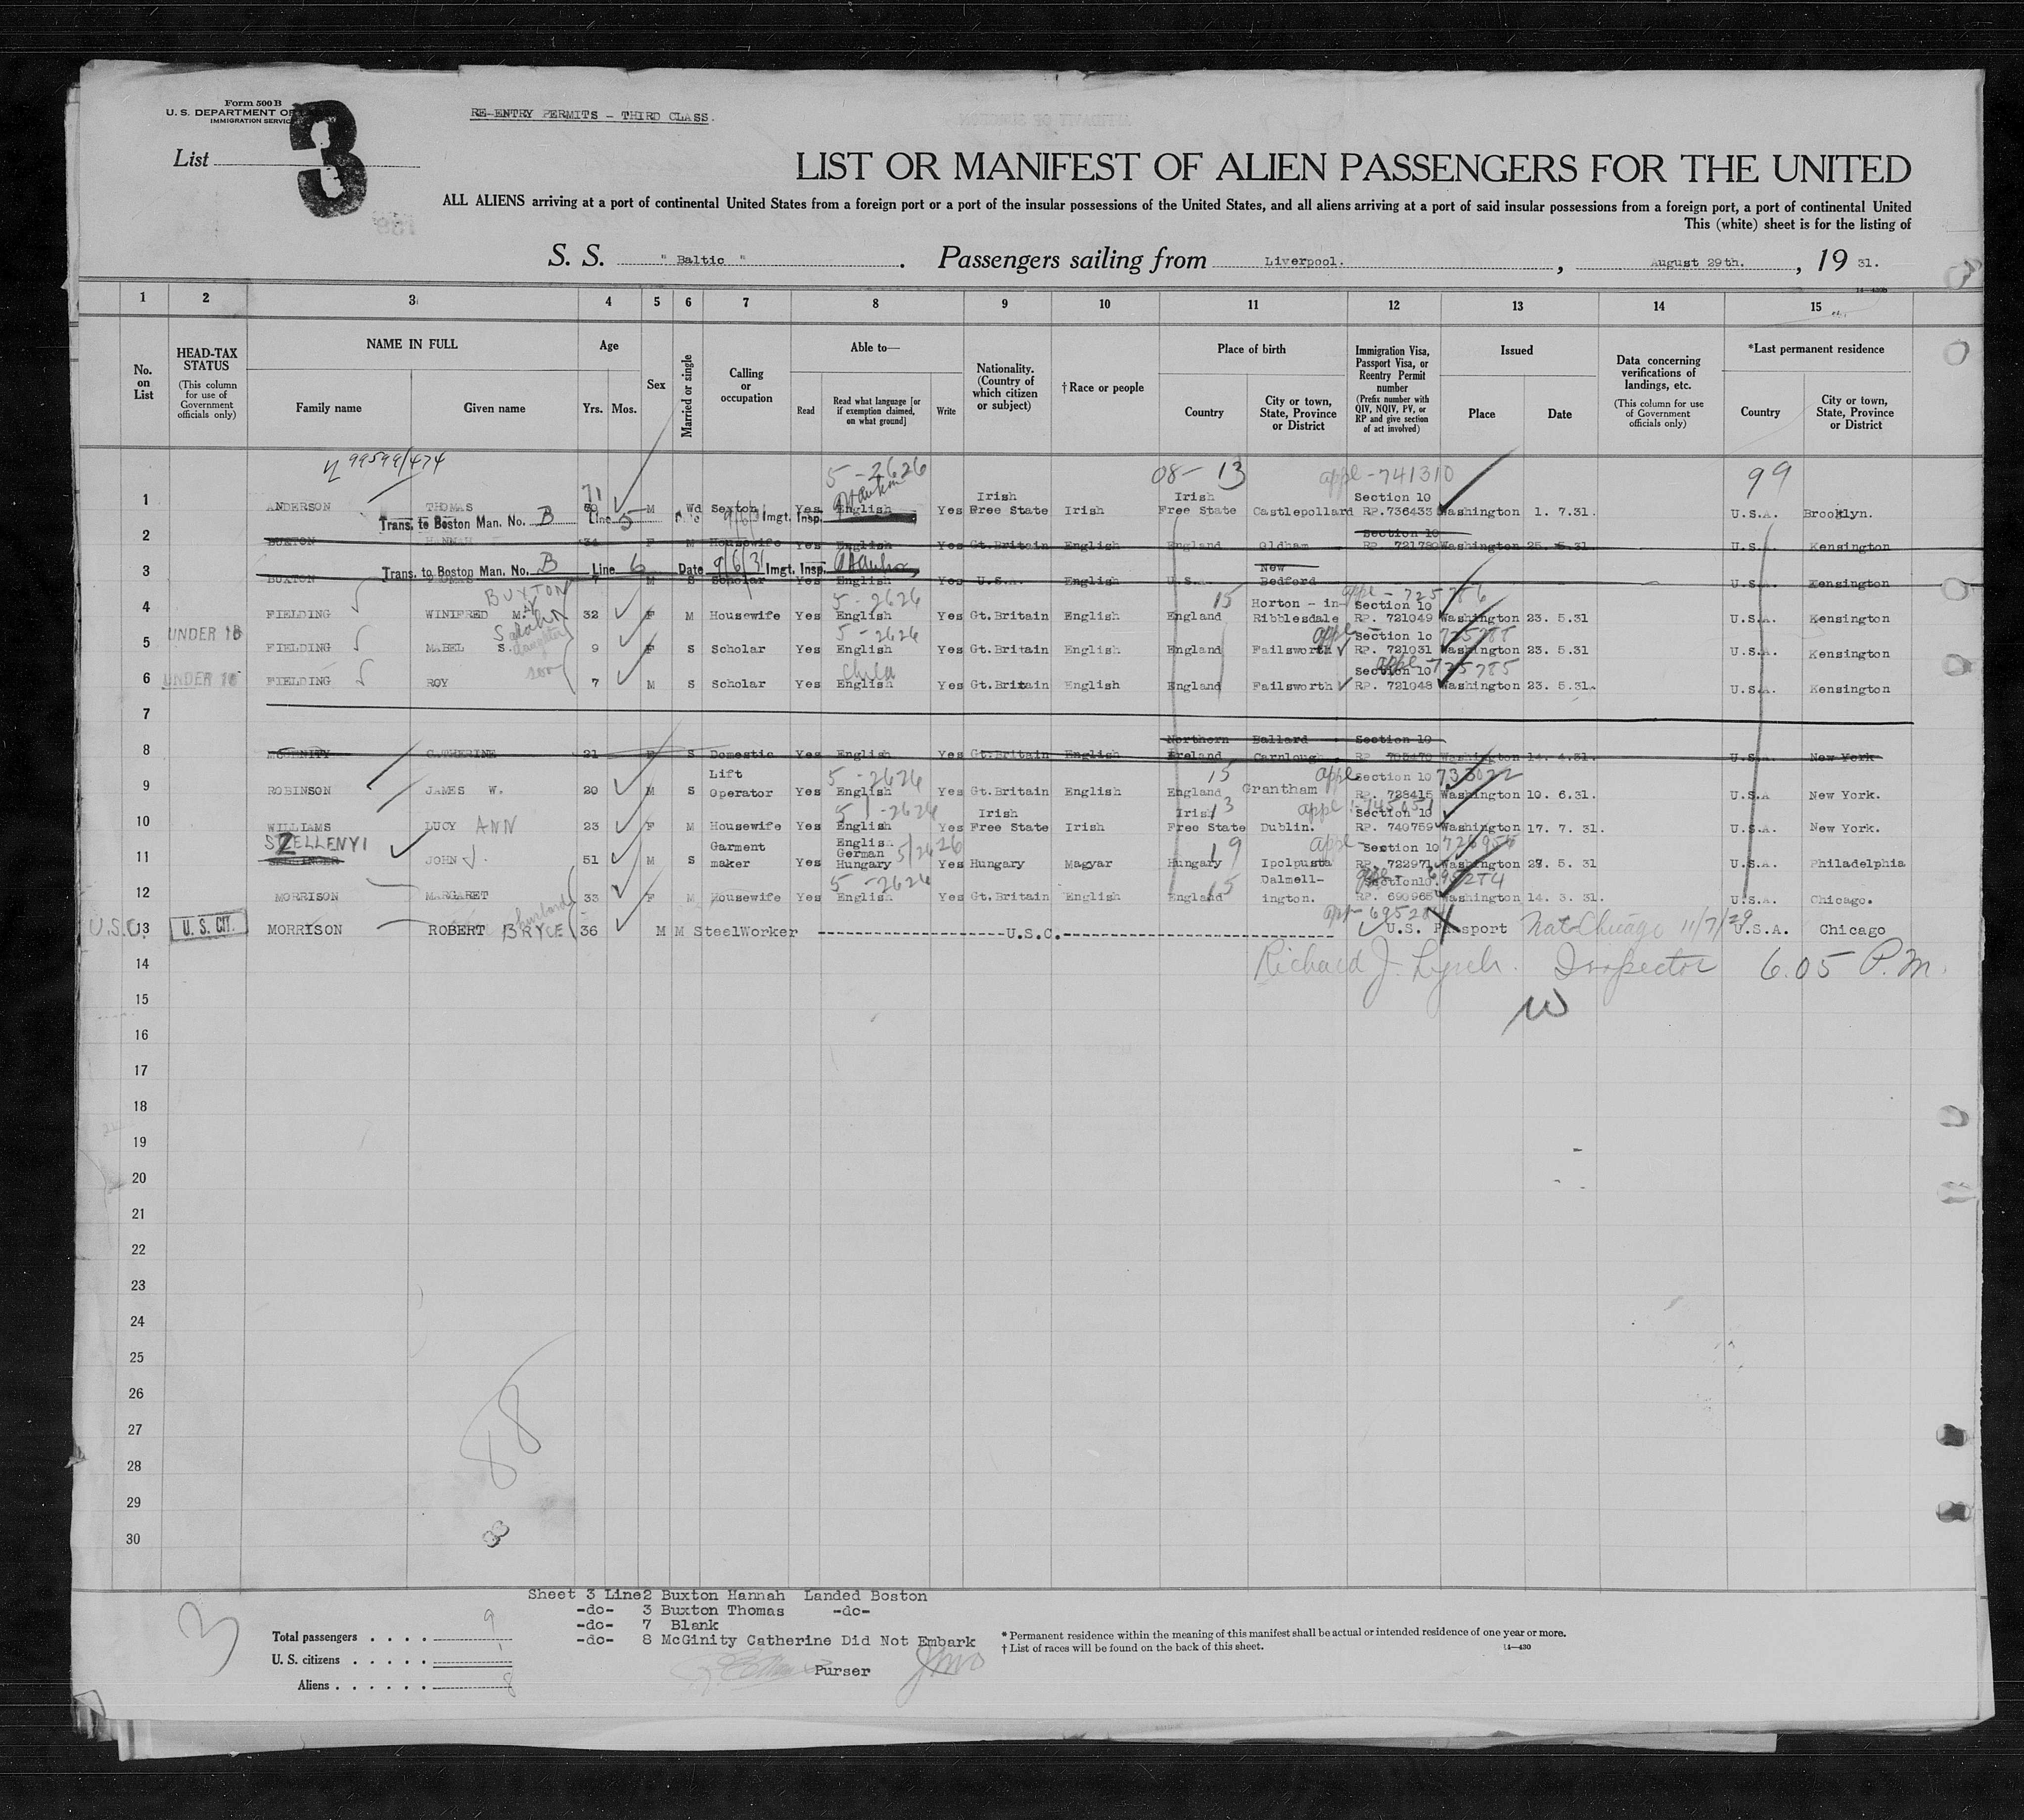 Form 500 B
U. S. DEPARTMENT OF
IMMIGRATION SERVICE
3
List
RE-ENTRY PERMITS - THIRD CLASS.
LIST OR MANIFEST OF ALIEN PASSENGERS FOR THE UNITED
ALL ALIENS arriving at a port of continental United States from a foreign port or a port of the insular possessions of the United States, and all aliens arriving at a port of said insular possessions from a foreign port, a port of continental United
This (white) sheet is for the listing of
S. S. " Baltic " . Passengers sailing from Liverpool. , August 29th. , 19 31.
1 2 3 4 5 6 7 8 9 10 11 12 13 14 15
No. on List
HEAD-TAX STATUS (This column for use of Government officials only)
NAME IN FULL
Family name
Given name
Age
Yrs. Mos.
Sex
Married or single
Calling or occupation
Able to—
Read
Read what language [or if exemption claimed, on what ground]
Write
Nationality. (Country of which citizen or subject)
†Race or people
Place of birth
Country
City or town, State, Province or District
Immigration Visa, Passport Visa, or Reentry Permit number (Prefix number with QIV, NQIV, PV, or RP and give section of act involved)
Issued
Place
Date
Data concerning verifications of landings, etc. (This column for use of Government officials only)
*Last permanent residence
Country
City or town, State, Province or District
99599/474 5-2626 08-13 appl-741310 99
71
1 ANDERSON THOMAS 60 M Wd Sexton Yes English Yes Irish Free State Irish Irish Free State Castlepollard Section 10 RP.736433 Washington 1. 7.31. U.S.A. Brooklyn.
Trans. to Boston Man. No. B Line 5 Date 9/6/31 Imgt. Insp.
2 BUXTON HANNAH 34 F M Housewife Yes English Yes Gt.Britain English England Oldham Section 10 RP. 721780 Washington 25. 5.31 U.S.A. Kensington
Trans. to Boston Man. No. B Line 6 Date 9/6/31 Imgt. Insp.
3 BUXTON THOMAS 7 M S Scholar Yes English Yes U.S.A. English U.S.A. New Bedford U.S.A. Kensington
BUXTON 5-2626 15 appl-725786
4 FIELDING WINIFRED M. 32 F M Housewife Yes English Yes Gt.Britain English England Horton - in- Ribblesdale Section 10 RP. 721049 Washington 23. 5.31 U.S.A. Kensington
Sarah 5-2626 appl-
5 UNDER 18 FIELDING MABEL S. daughter 9 F S Scholar Yes English Yes Gt.Britain English England Failsworth Section 10 RP. 721031 Washington 23. 5.31 U.S.A. Kensington
son Child appl-725785
6 UNDER 18 FIELDING ROY 7 M S Scholar Yes English Yes Gt.Britain English England Failsworth Section 10 RP. 721048 Washington 23. 5.31. U.S.A. Kensington
7
8 McGINITY CATHERINE 21 F S Domestic Yes English Yes Gt.Britain English Northern Ireland Ballard Carnloug Section 10 Washington 14. 4.31. U.S.A. New York
5-2626 15 appl 733022
9 ROBINSON JAMES W. 20 M S Lift Operator Yes English Yes Gt.Britain English England Grantham Section 10 RP. 728415 Washington 10. 6.31. U.S.A New York.
5-2626 13 appl-745051
10 WILLIAMS LUCY ANN 23 F M Housewife Yes English Yes Irish Free State Irish Irish Free State Dublin. Section 10 RP. 740759 Washington 17. 7. 31. U.S.A. New York.
SZELLENYI 5/2626 19 appl-
11 JOHN J. 51 M S Garment maker Yes English German Hungary Yes Hungary Magyar Hungary Ipolpusta Section 10 RP. 722971 Washington 28. 5. 31 U.S.A. Philadelphia
5-2626 15 appl- 695274
12 MORRISON MARGARET 33 F M Housewife Yes English Yes Gt.Britain English England Dalmell- ington. Section10. RP. 690965 Washington 14. 3. 31. U.S.A. Chicago.
appl-
U.S.C. 13 U. S. CIT. MORRISON ROBERT BRYCE husband 36 M M SteelWorker ---U.S.C.--- U.S. Passport Nat-Chicago 11/7/29 U.S.A. Chicago
14 Richard J. Lynch. Inspector 6.05 P.M.
15
W
16
17
18
19
20
21
22
23
24
25
26
27
28
29
30
88
Sheet 3 Line2 Buxton Hannah Landed Boston
-do- 3 Buxton Thomas -do-
-do- 7 Blank
-do- 8 McGinity Catherine Did Not Embark
Purser
3
Total passengers . . . . 9
U. S. citizens . . . . . 1
Aliens . . . . . . 8
* Permanent residence within the meaning of this manifest shall be actual or intended residence of one year or more.
† List of races will be found on the back of this sheet.
14—430